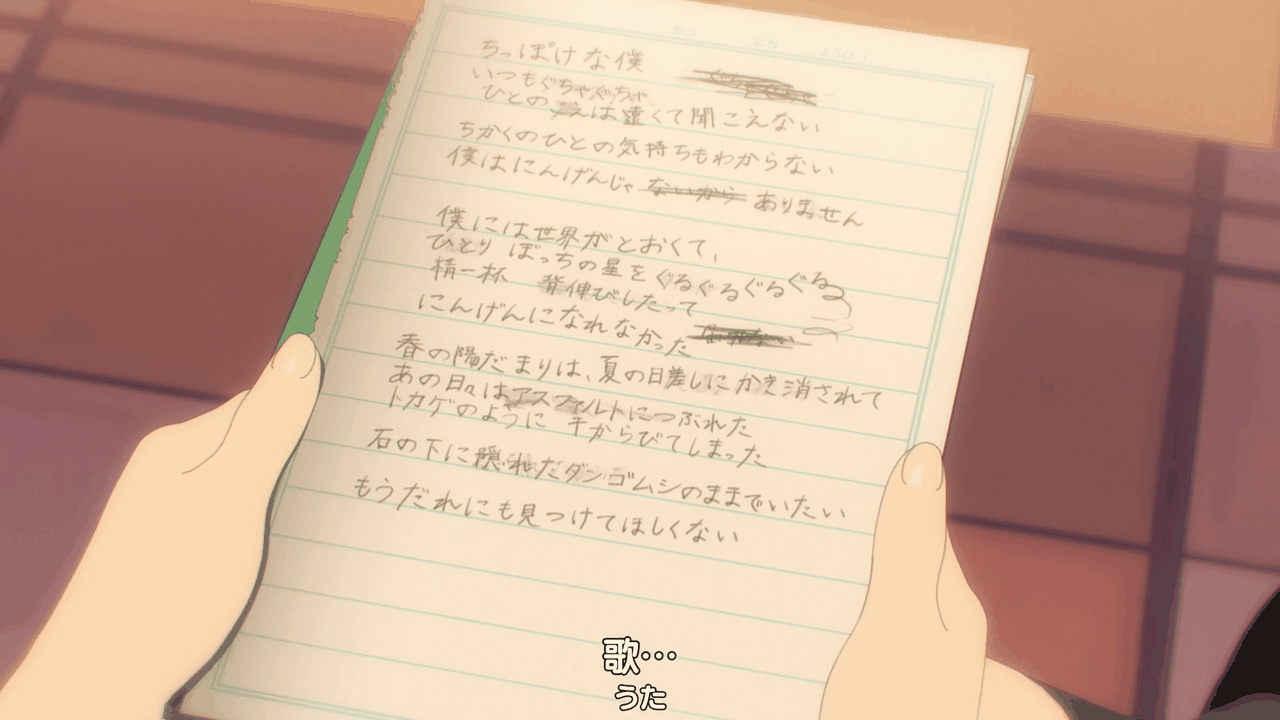 がつ にち ようび
ちっぽけな僕
いつもぐちゃぐちゃ
ひとの こえは遠くて聞こえない
ちかくのひとの気持ちもわからない
僕はにんげんじゃ ないから ありません
僕には世界がとおくて、
ひとり ぼっちの星をぐるぐるぐるぐる
精一杯 背伸びしたって
にんげんになれなかった
春の陽だまりは、夏の日差しにかき消されて
あの日々はアスファルトにつぶれた
トカゲのように 干からびてしまった
石の下に隠れたダンゴムシのままでいたい
もうだれにも見つけてほしくない
歌…
うた